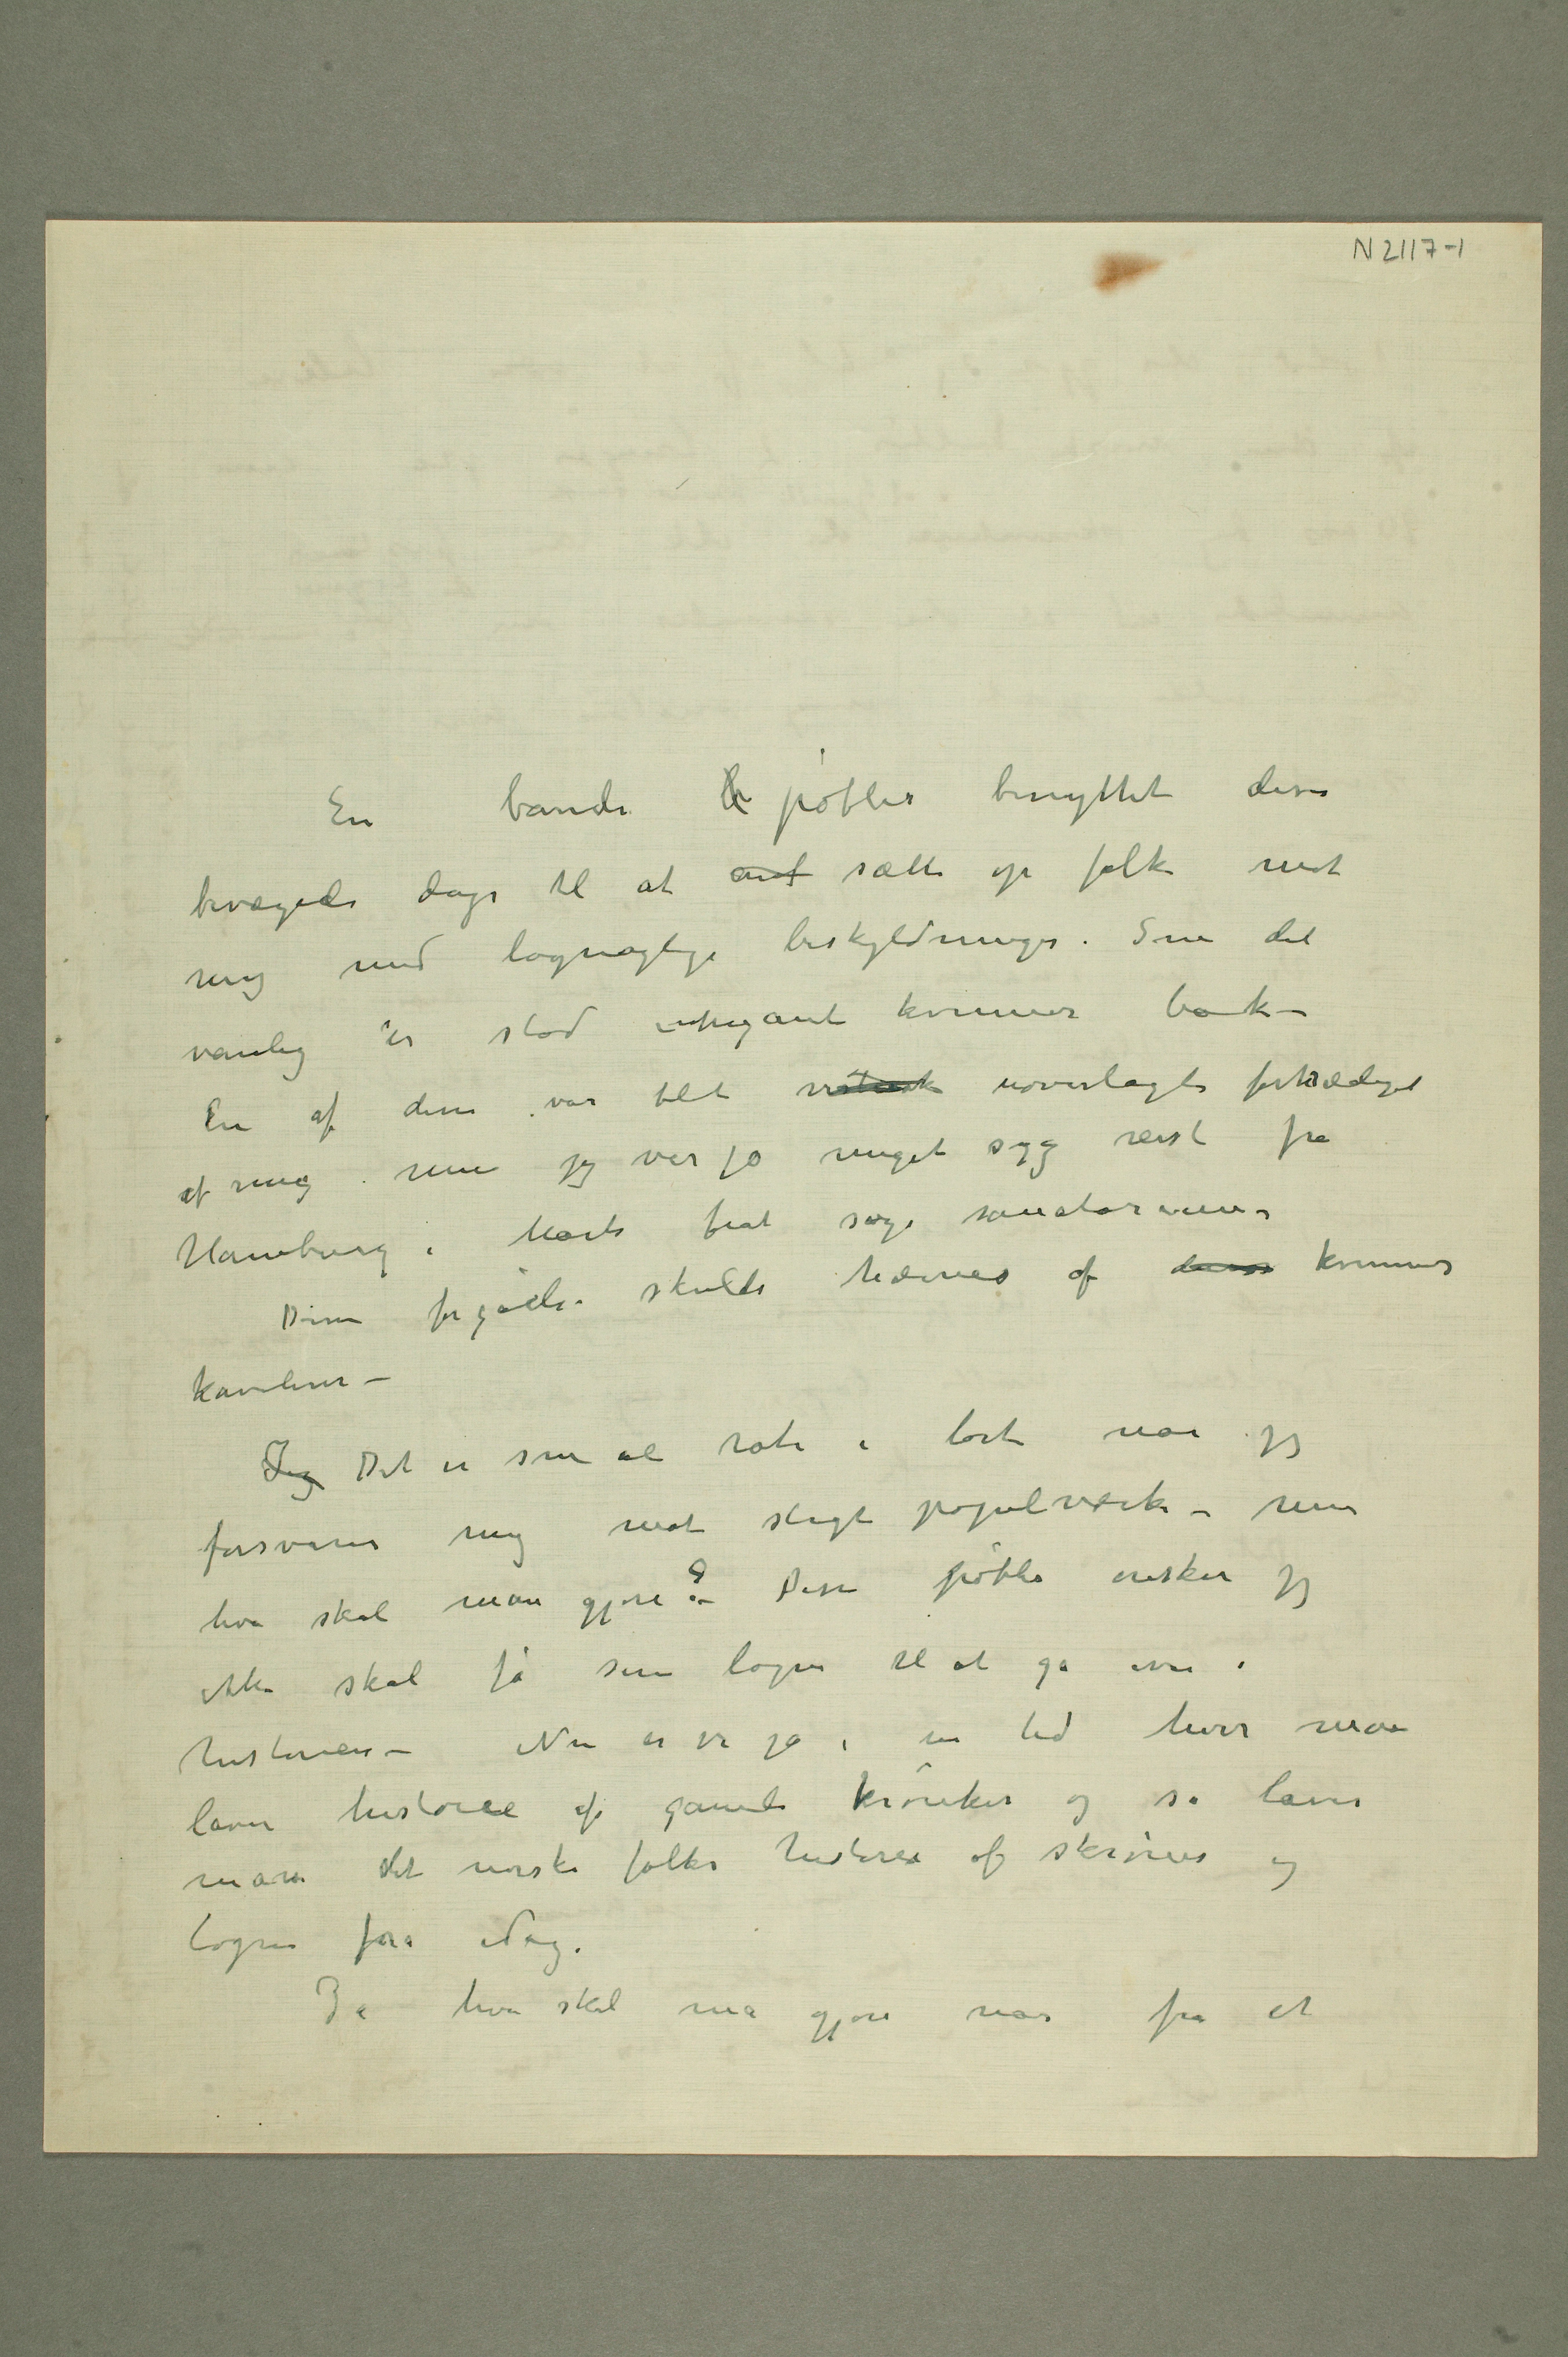 N 2117-1
En bande pøbler benyttet disse
bevægede dage til at ant sætte op folk mot
mig med løgnagtige beskyldninger. Som det
vanlig er stod intrigante kvinner bak –
En af dem var blit uoverlagt fortrædiget
af mig. men jeg var jo meget syg reist fra
Hamburg i Marts for at søge sanatorium –
Denne forgåelse skulde hævnes af kvinnens
kavalerer –
Jeg Det er som at rote i lort når jeg
forsvarer mig mot sligt pøpelværk – men
hva skal man gjøre? – Disse pøbler ønsker jeg
ikke skal få sine løgne til at gå over i
historien – Nu er vi jo i en tid hvor man
laver historie af gamle krøniker og så laver
man det norske folks historie af skrøner og
løgne fra idag.
Ja hva skal man gjøre når fra et